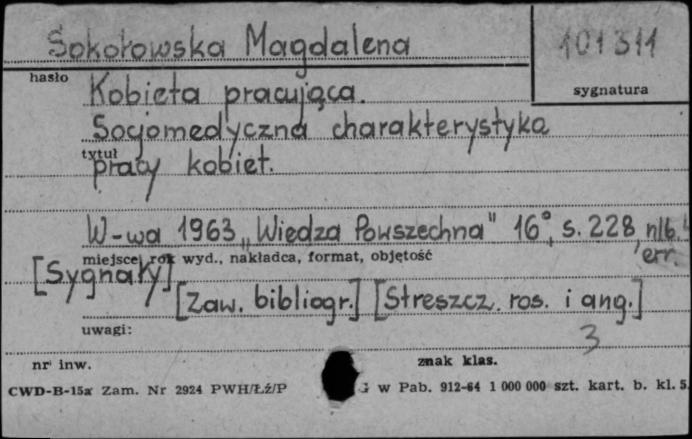 Sokołowska Magdalena
101311
hasło
sygnatura
Kobieta pracująca.
Socjomedyczna charakterystyka
tytuł
pracy kobiet.
W-wa 1963 „Wiedza Powszechna" 16°, s. 228, nlb.
err.
miejsce, rok wyd., nakładca, format, objętość
[Sygnały]
[Zaw. bibliogr.] [Streszcz. ros. i ang.]
uwagi:
3
nr inw.
znak klas.
CWD-B-15a Zam. Nr 2924 PWH/Łź/P
G w Pab. 912-64 1 000 000 szt. kart. b. kl. 5.